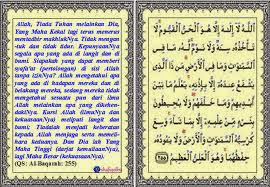 Allah, Tiada Tuhan melainkan Dia,
Yang Maha Kekal lagi terus menerus
mentadbir makhlukNya. Tidak mengan-
tuk dan tidak tidur. KepunyaanNya
segala apa yang ada di langit dan di
bumi. Siapakah yang dapat memberi
syafa'at (pertolongan) di sisi Allah
tanpa izinNya? Allah mengetahui apa
yang ada di hadapan mereka dan di
belakang mereka, sedang mereka tidak
mengetahui sesuatu pun dari ilmu
Allah melainkan apa yang dikehen-
dakiNya. Kursi Allah (ilmuNya dan
kekuasaanNya) meliputi langit dan
bumi; Tiadalah menjadi keberatan
kepada Allah menjaga serta memeli-
hara keduanya. Dan Dia lah Yang
Maha Tinggi (darjat kemuliaanNya),
lagi Maha Besar (kekuasaanNya)
(QS: Al-Baqarah: 255)
اللَّهُ لَا إِلَٰهَ إِلَّا هُوَ الْحَيُّ الْقَيُّومُ لَا
تَأْخُذُهُ سِنَةٌ وَلَا نَوْمٌ لَهُ مَا فِي
السَّمَاوَاتِ وَمَا فِي الْأَرْضِ مَنْ ذَا الَّذِي
يَشْفَعُ عِنْدَهُ إِلَّا بِإِذْنِهِ يَعْلَمُ مَا بَيْنَ
أَيْدِيهِمْ وَمَا خَلْفَهُمْ وَلَا يُحِيطُونَ
بِشَيْءٍ مِنْ عِلْمِهِ إِلَّا بِمَا شَاءَ وَسِعَ كُرْسِيُّهُ
السَّمَاوَاتِ وَالْأَرْضَ وَلَا يَئُودُهُ
حِفْظُهُمَا وَهُوَ الْعَلِيُّ الْعَظِيمُ ٢٥٥